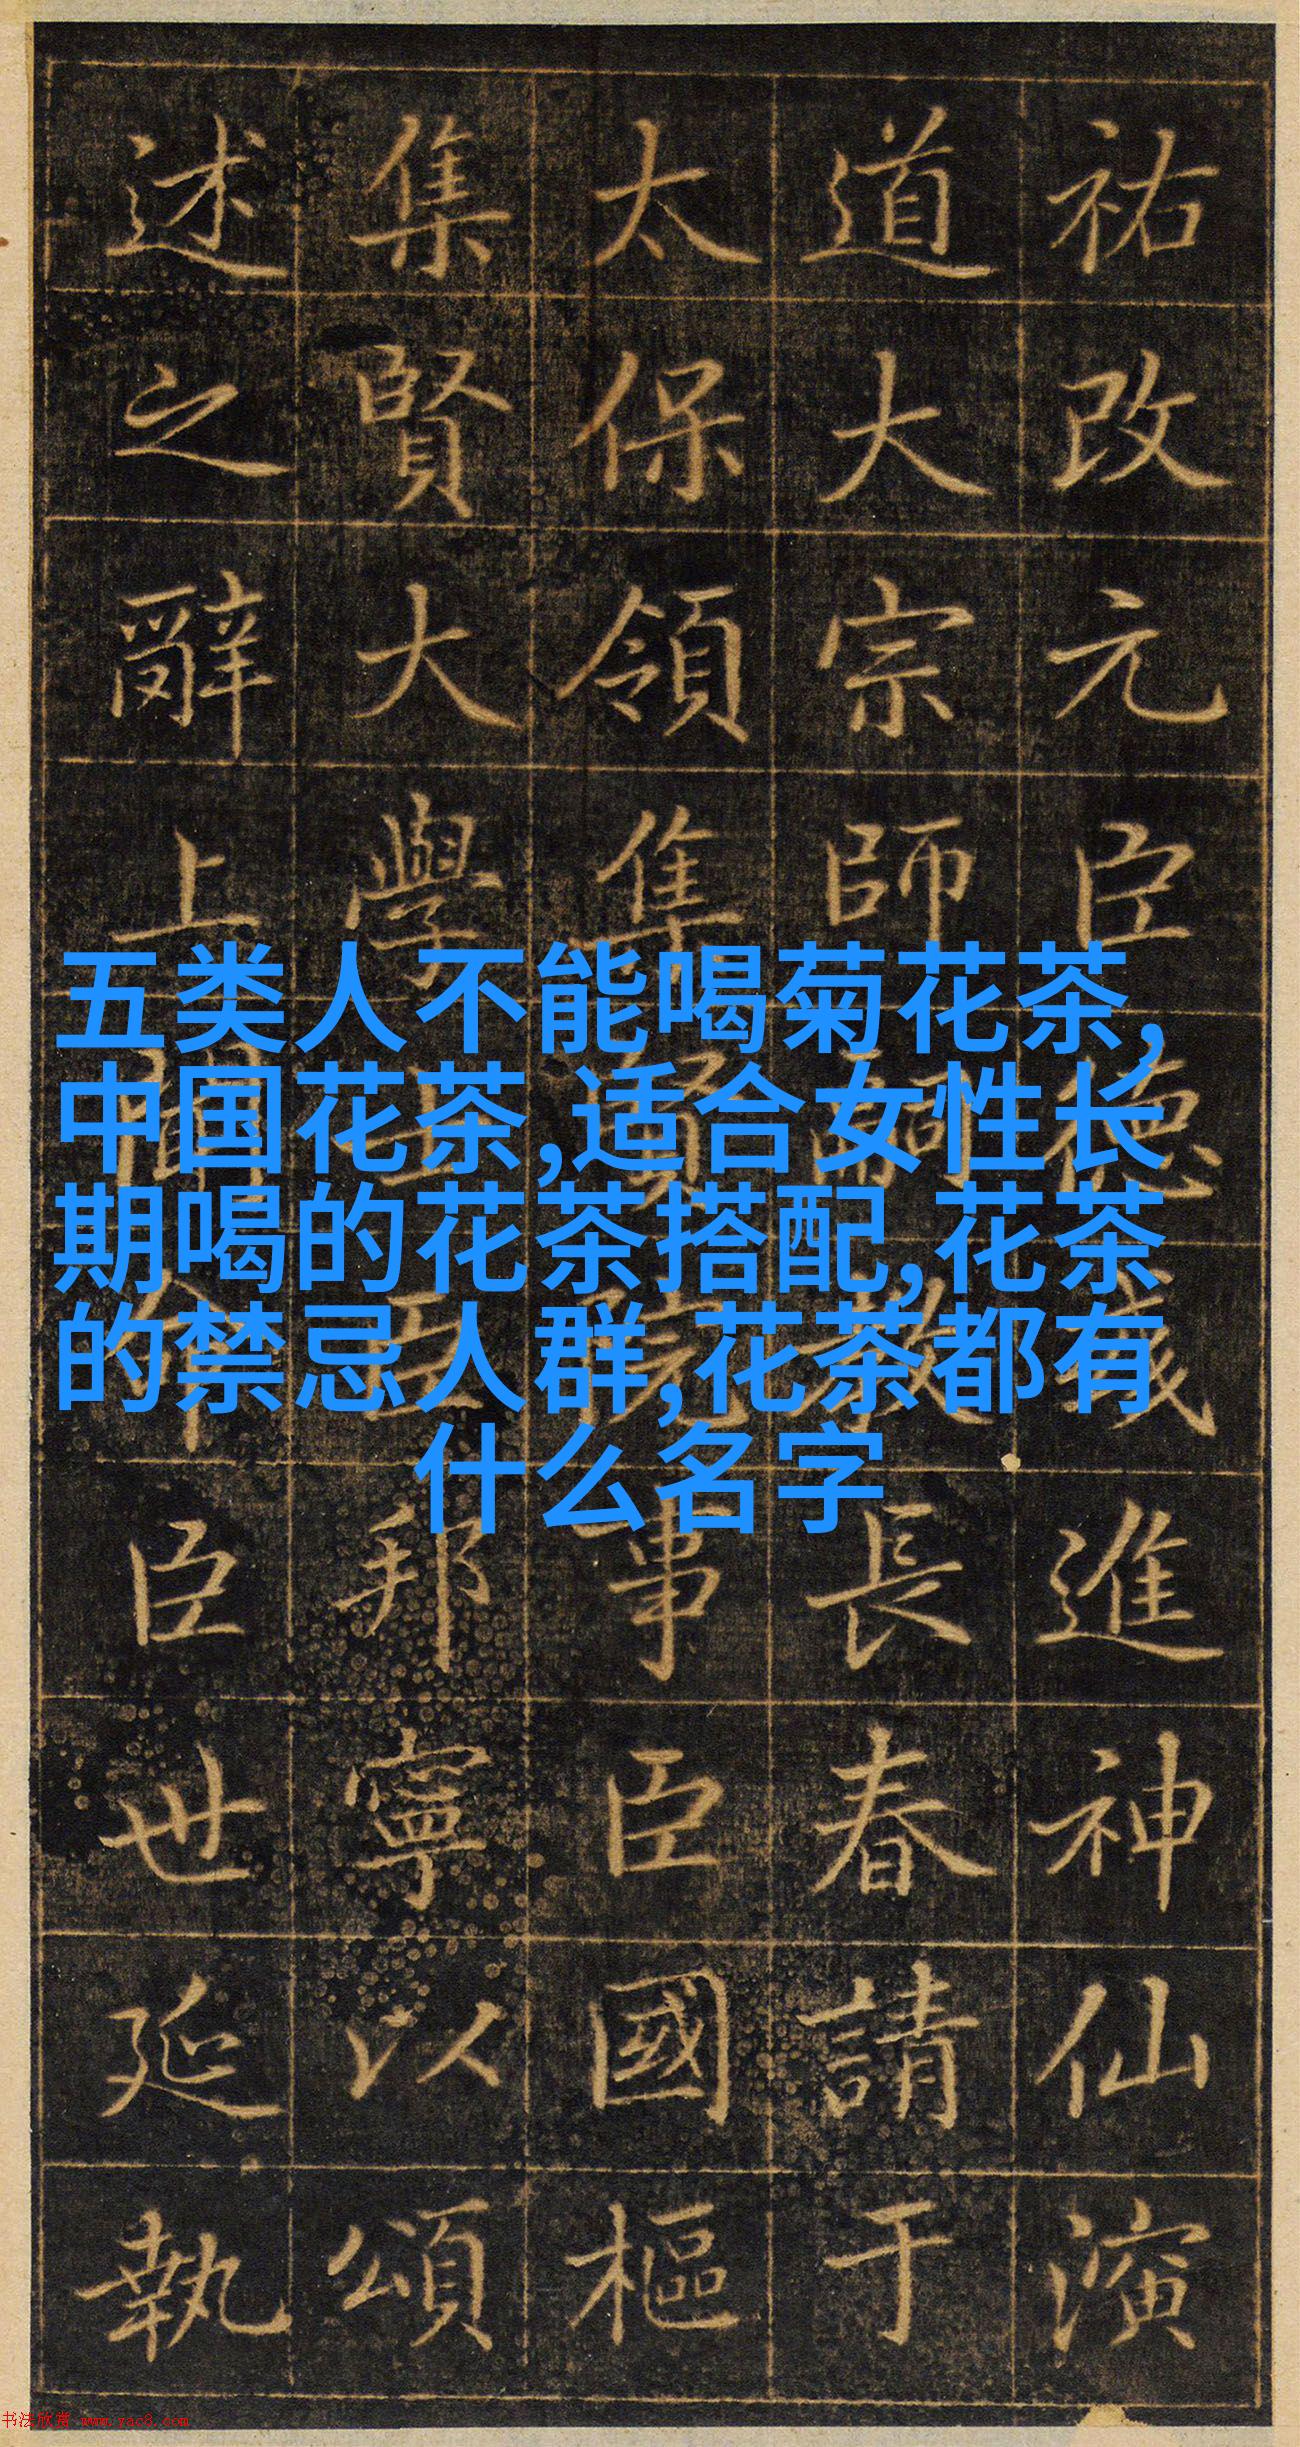 祐改元臣德進神仙演
道大宗師教長春請于
太保領集賢院事臣國樞
集賢大學士臣邦寧以頌
述之辭上聞臣世延執
五类人不能喝菊花茶,
中国花茶,适合女性长
期喝的花茶搭配,花茶
的禁忌人群,花茶都有
什么名字
书法欣赏 www.yac8.com